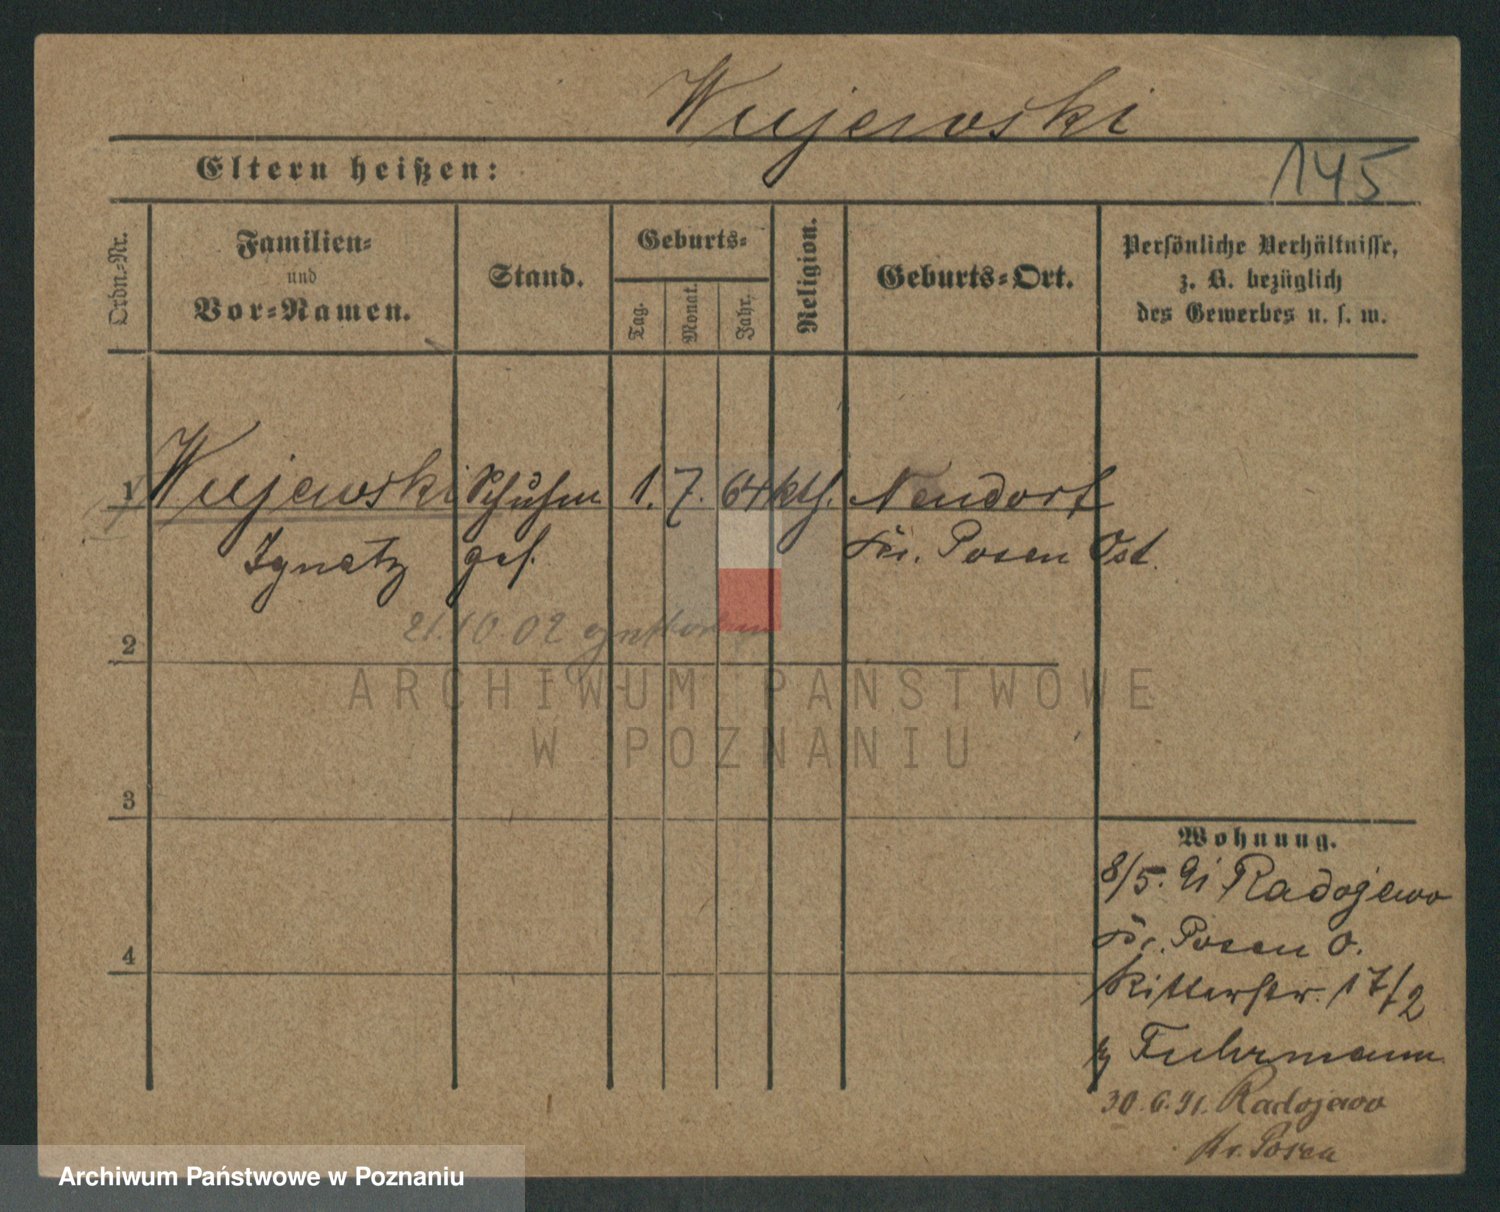 Wujewski
Eltern heißen:
145
Ordn.-Nr.
Familien-
und
Vor-Namen.
Stand.
Geburts-
Tag.
Monat.
Jahr.
Religion.
Geburts-Ort.
Persönliche Verhältnisse,
z. B. bezüglich
des Gewerbes u. s. w.
1 Wujewski Schuhm 1. 7. 64 kth. Neudorf
Ignatz ges. Kr. Posen Ost.
21.10.02
2
ARCHIWUM PAŃSTWOWE
W POZNANIU
3
Wohnung.
8/5. 91 Radojewo
Kr. Posen O.
4
Ritterstr. 17/2
Fuhrmann
30.6.91. Radojewo
Kr. Posen
Archiwum Państwowe w Poznaniu